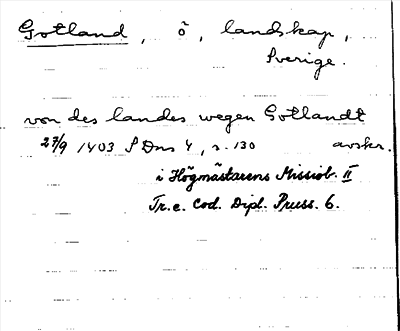 Gotland, ö, landskap,
Sverige.
von des landes wegen Gotlandt
27/9 1403 SDns 4, s. 130 avskr.
i Högmästarens Missivb. II
Tr. e. Cod. Dipl. Pruss. 6.